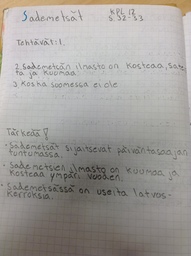 Sademetsät
KPL 12
s. 32-33
Tehtävät:1.
2. Sademetsän ilmasto on kosteaa, sate
ta ja kuumaa.
3 Koska suomessa ei ole
Tärkeää!
• Sademetsät sijaitsevat päiväntasaajan
tuntumassa.
• Sademetsien ilmasto on kuumaa ja
kosteaa ympäri vuoden.
• Sademetsässä on useita latvus-
kerroksia.